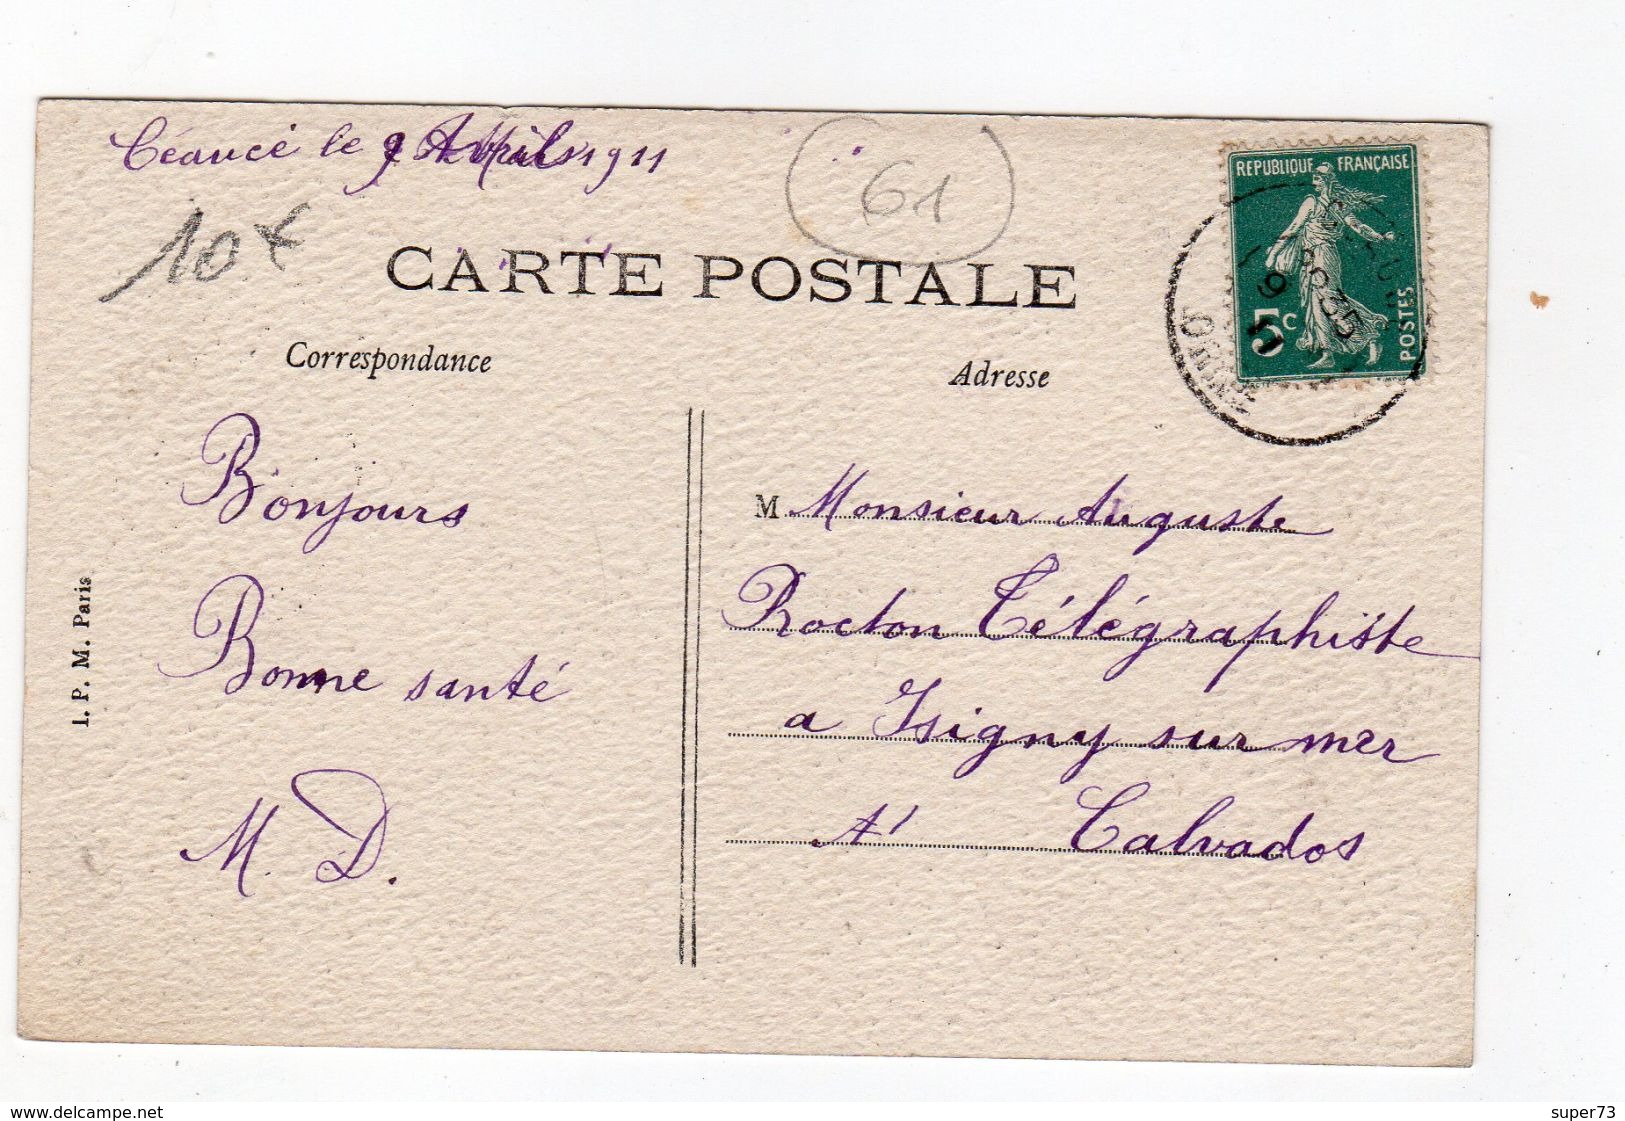 Céaucé le 9 Avril 1911
61
10 €
CARTE POSTALE
REPUBLIQUE FRANÇAISE
5c
POSTES
ORNE
Correspondance
Adresse
Bonjours
Bonne santé
M. D.
M Monsieur Auguste
Rocton Télégraphiste
a Isigny sur mer
Calvados
I. P. M. Paris
www.delcampe.net
super73